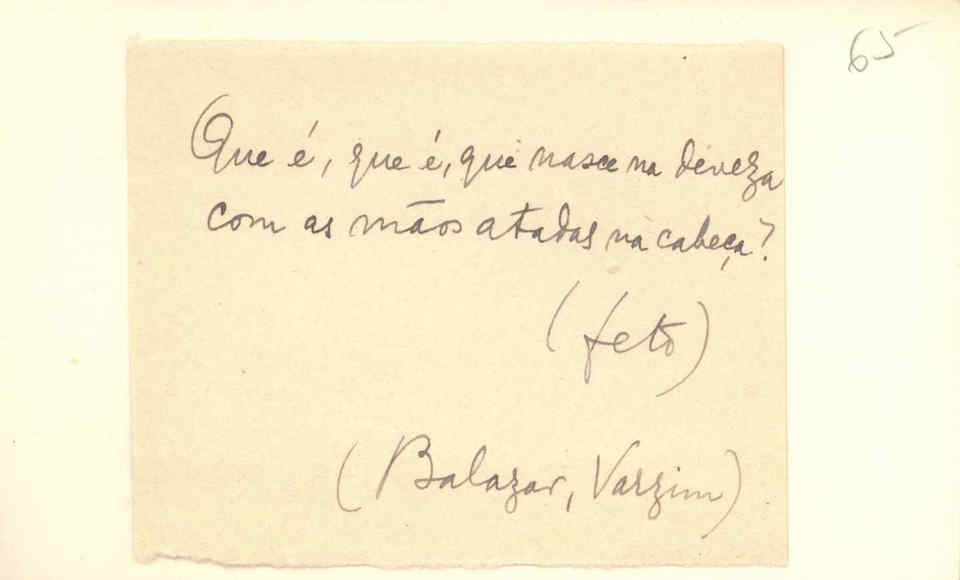 65
Que é, que é, que nasce na deveza
com as mãos atadas na cabeça?
(feto)
(Balazar, Varzim)